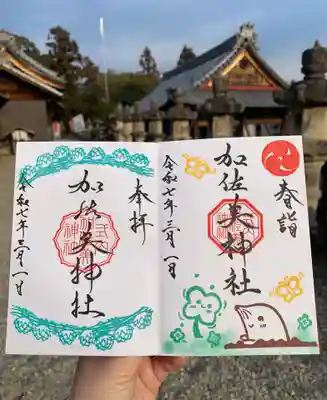 春詣
加佐美神社
令和七年三月一日
奉拝
加佐美神社
令和七年三月一日